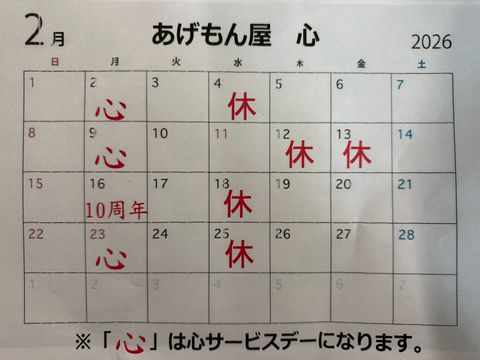 2月 あげもん屋 心 2026
日 月 火 水 木 金 土
1 2 3 4 5 6 7
心 休
8 9 10 11 12 13 14
心 休 休
15 16 17 18 19 20 21
10周年 休
22 23 24 25 26 27 28
心 休
1 2 3 4 5 6 7
※「心」は心サービスデーになります。